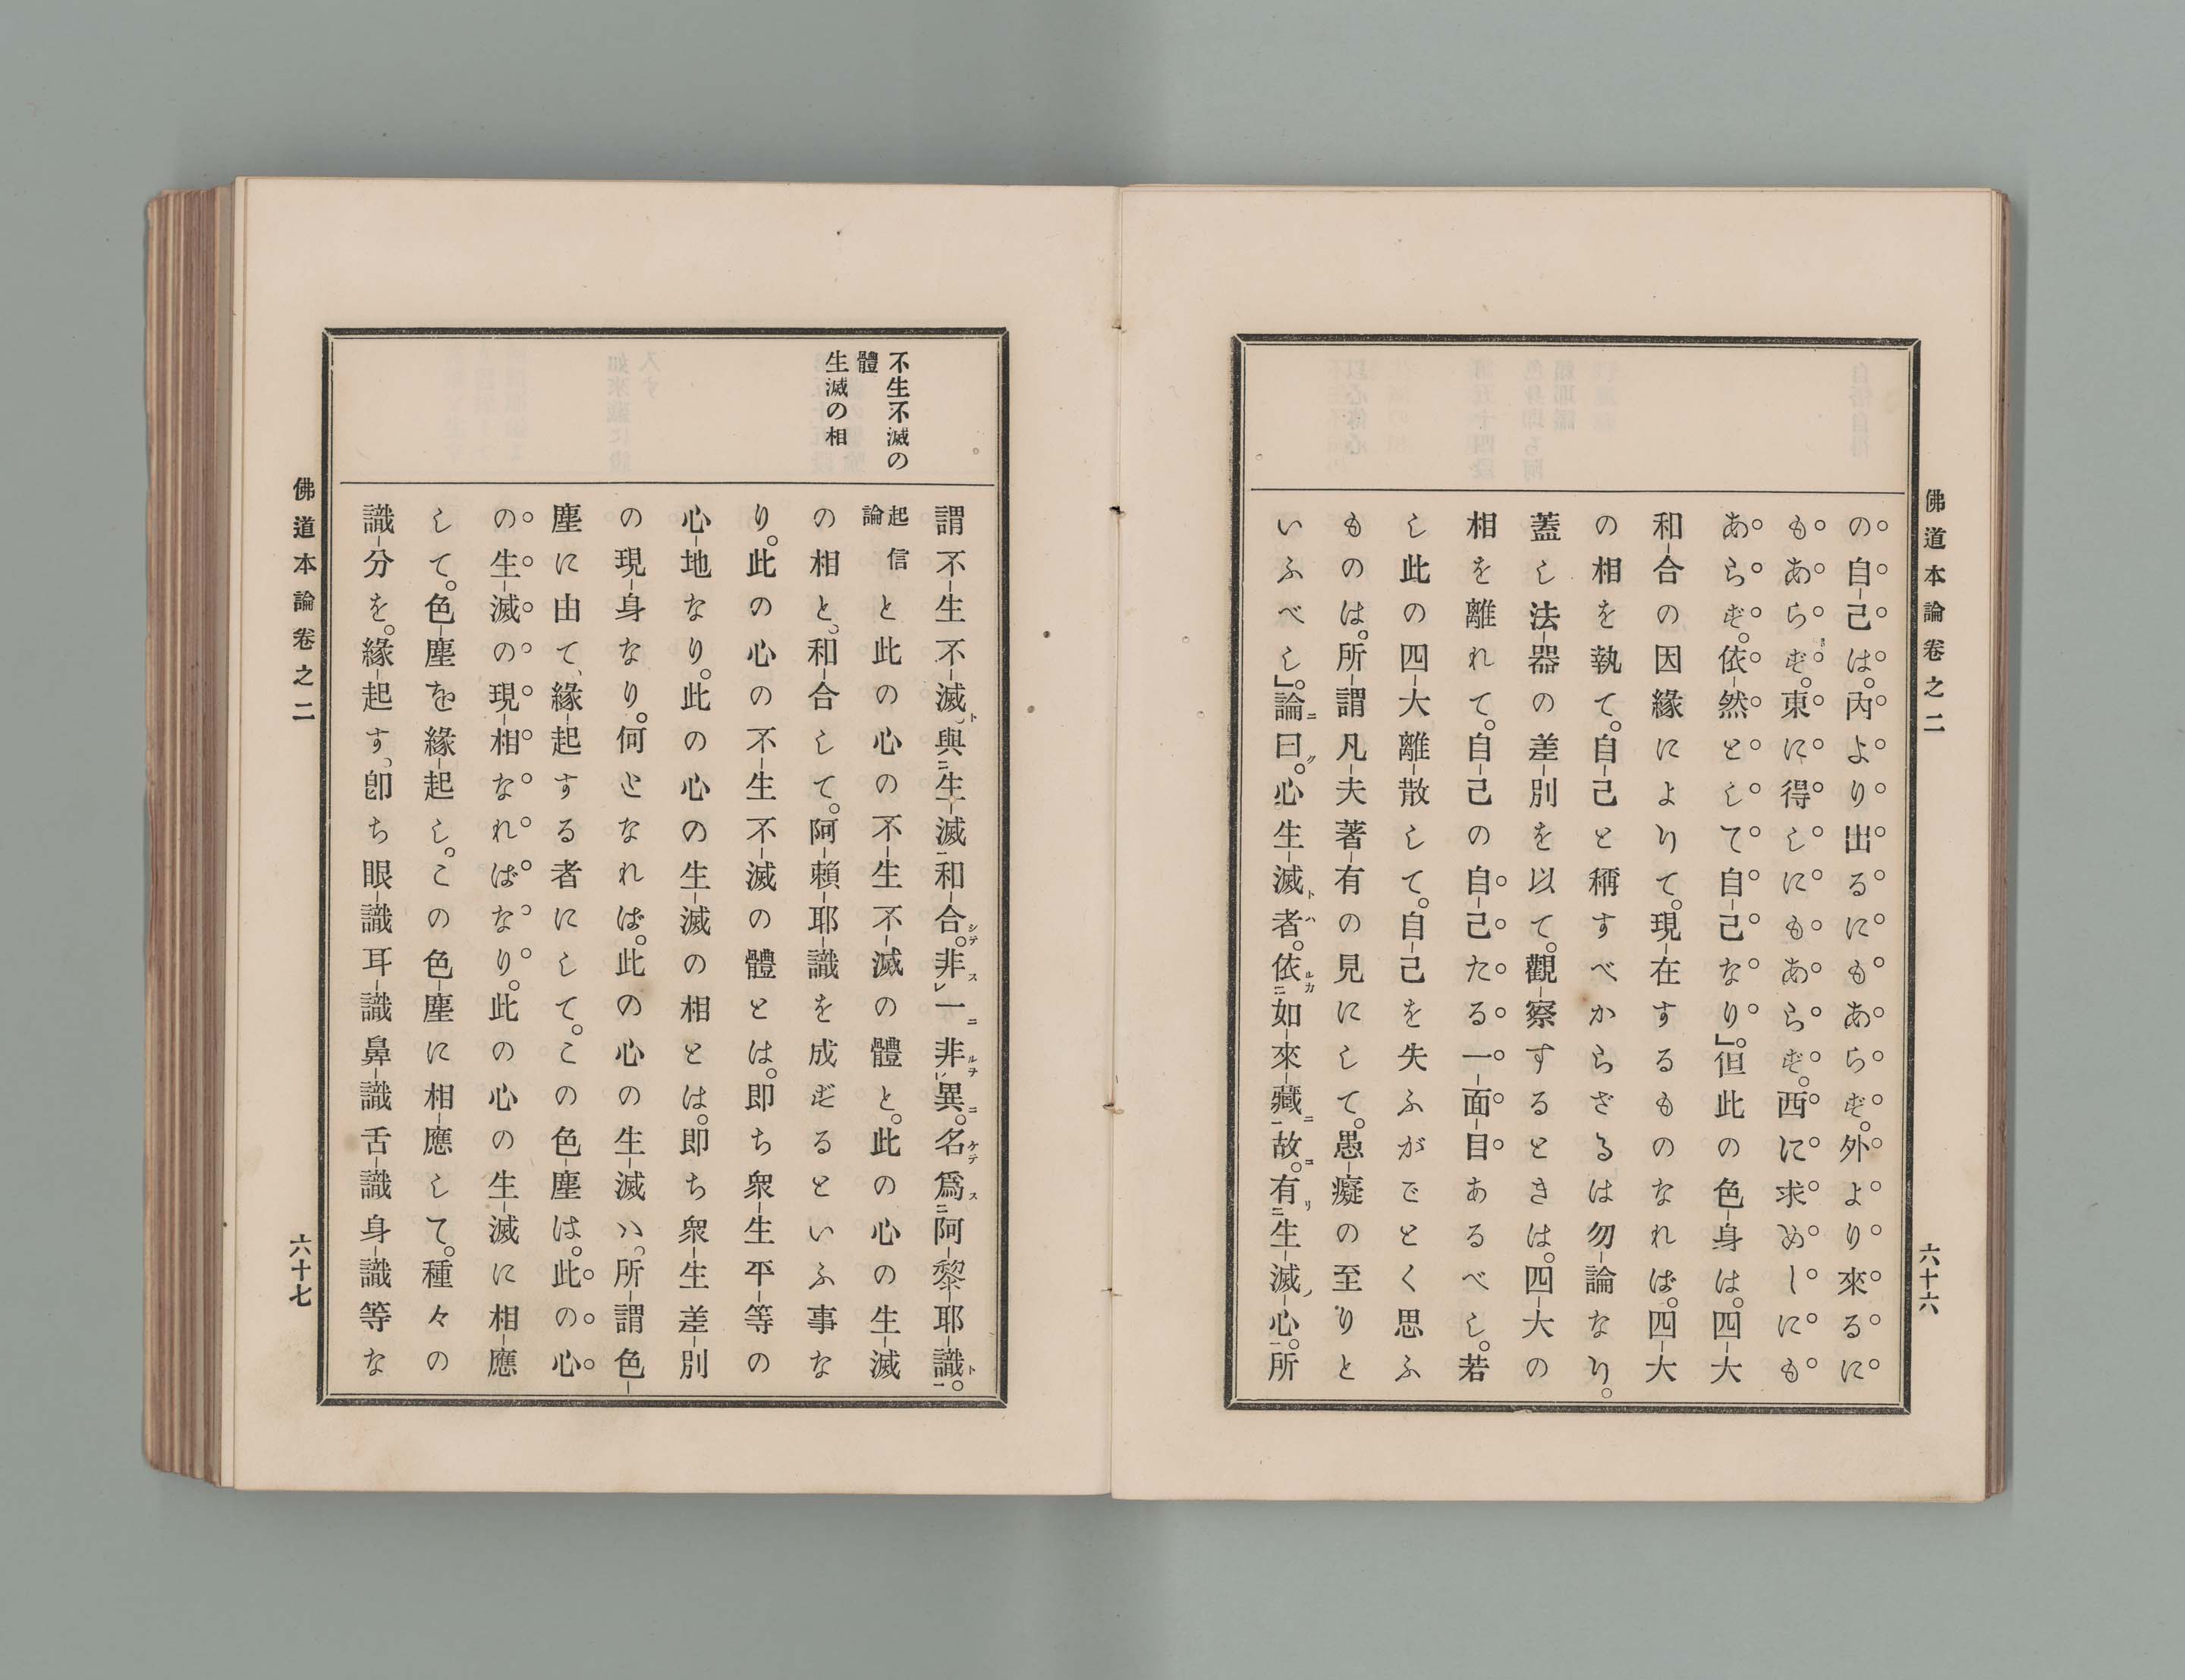 佛道本論卷之二
六十六
の自己は。內より出るにもあらず。外より來るに
もあらず。東に得しにもあらず。西に求めしにも
あらず。依然として自己なり」。但此の色身は。四大
和合の因緣によりて。現在するものなれば。四大
の相を執て。自己と稱すべからざるは勿論なり。
蓋し法器の差別を以て。觀察するときは。四大の
相を離れて。自己の自己たる一面目あるべし。若
し此の四大離散して。自己を失ふがごとく思ふ
ものは。所謂凡夫著有の見にして。愚癡の至りと
いふべし」。論ニ曰ク。心生滅トハ者。依ルカ二如來藏ニ一故ニ。有リ二生滅ノ心一。所
不生不滅の
體
生滅の相
謂不生不滅ト、與二生滅一和合シテ。非スレ一ニ非ルヲレ異ニ。名ケテ爲ス二阿黎耶識ト一。
起信論 と此の心の不生不滅の體と。此の心の生滅
の相と、和合して。阿賴耶識を成ずるといふ事な
り。此の心の不生不滅の體とは。即ち衆生平等の
心地なり。此の心の生滅の相とは。即ち衆生差別
の現身なり。何となれば。此の心の生滅ハ。所謂色
塵に由て、緣起する者にして。この色塵は。此の心
の生滅の現相なればなり。此の心の生滅に相應
して。色塵を緣起し。この色塵に相應して。種々の
識分を。緣起す、卽ち眼識耳識鼻識舌識身識等な
佛道本論卷之二
六十七